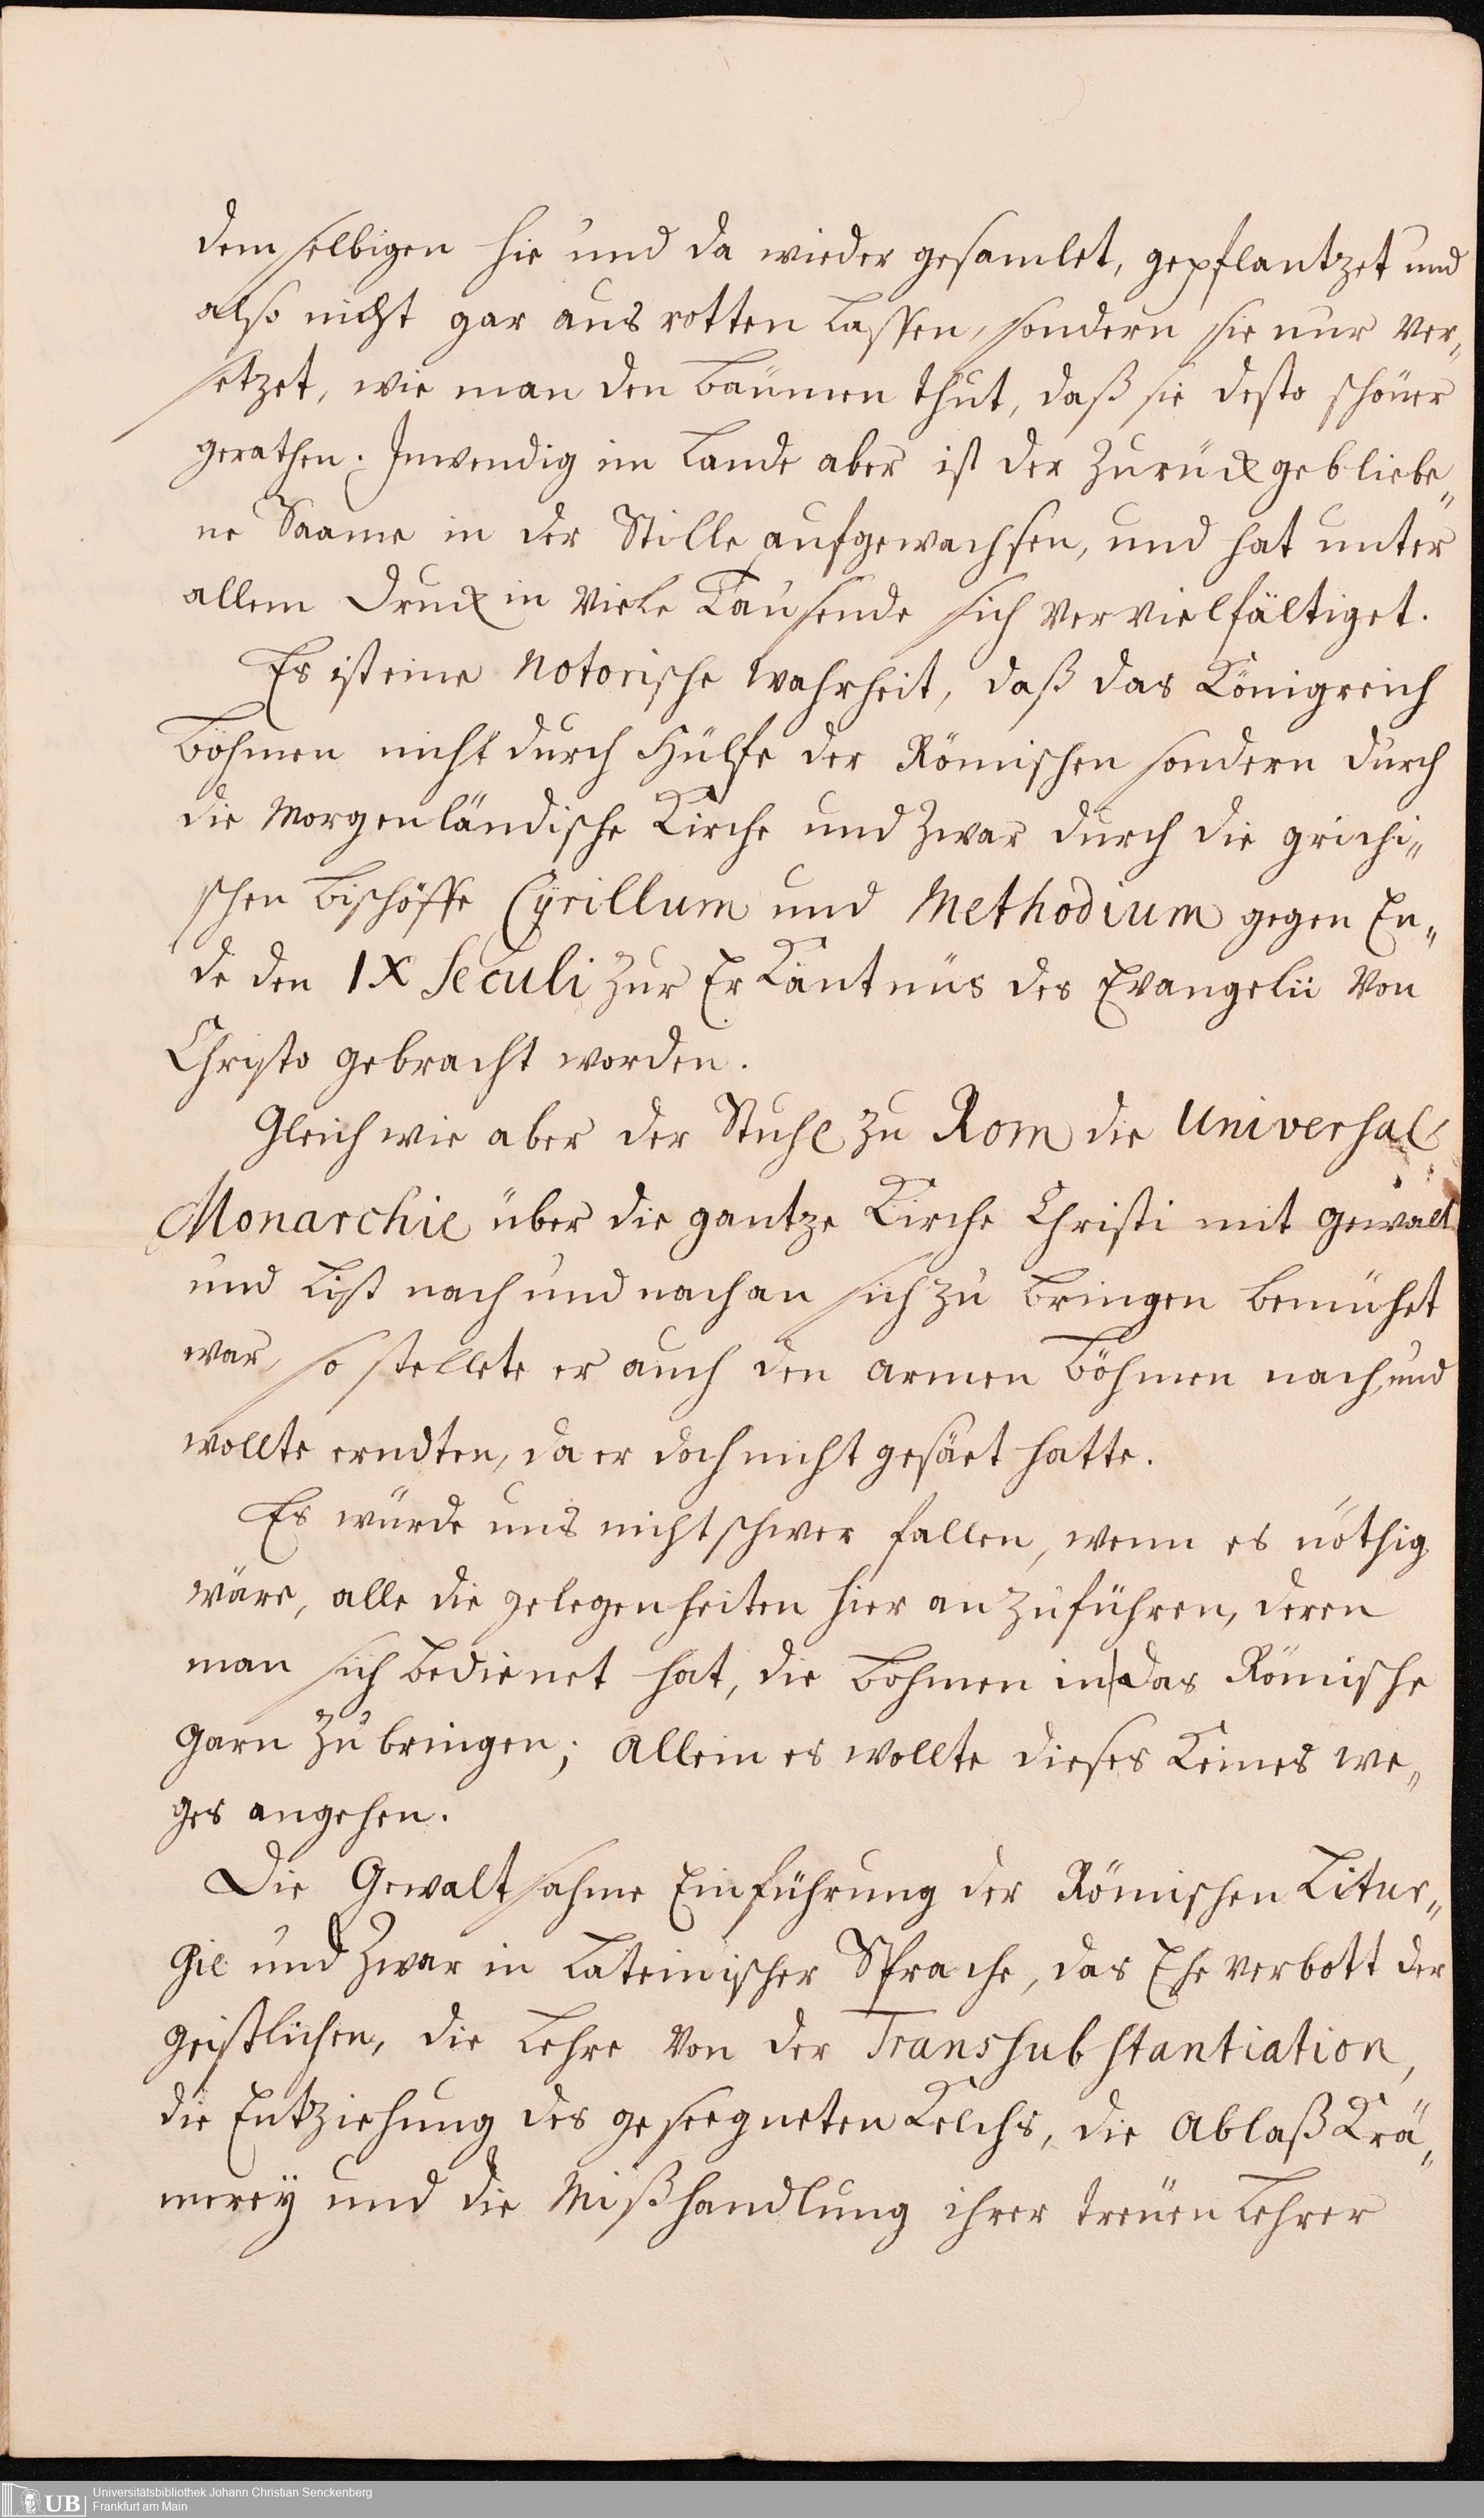 dem selbigen hie und da wieder gesamlet, gepflantzet und
also nicht gar aus rotten lassen, sondern sie nur ver„
setzet, wie man den bäumen thut, daß sie desto schöner
gerathen. Inwendig im Lande aber ist der zurückgebliebe„
ne Saame in der Stille aufgewachsen, und hat unter
allem Druck in viele Tausende sich vervielfältiget.
Es ist eine notorische wahrheit, daß das Königreich
Böhmen nicht durch Hülfe der Römischen sondern durch
die Morgenländische Kirche und zwar durch die grichi„
schen Bischöffe Cyrillum und Methodium gegen En„
de den IX Seculi zur Erkäntnüs des Evangelii von
Christo gebracht worden.
Gleich wie aber der Stuhl zu Rom die Universal
Monarchie über die gantze Kirche Christi mit gewalt
und List nach und nach an sich zu bringen bemühet
war, so stellete er auch den armen Böhmen nach, und
wollte erndten, da er doch nicht gesäet hatte.
Es würde uns nicht schwer fallen, wenn es nöthig
wäre, alle die gelegenheiten hier an zuführen, deren
man sich bedienet hat, die Bohmen in das Römische
garn zu bringen; allein es wollte dieses Keines we„
ges angehen.
Die Gewaltsahme Einführung der Römischen Litur„
gie und zwar in Lateinischer Sprache, das Ehe verbott der
geistlichen, die Lehre von der Transsubstantiation,
die Entziehung des geseegneten Kelchs, die Ablaß Krä„
merey und die Mißhandlung ihrer treüen Lehrer
UB Universitätsbibliothek Johann Christian Senckenberg
Frankfurt am Main